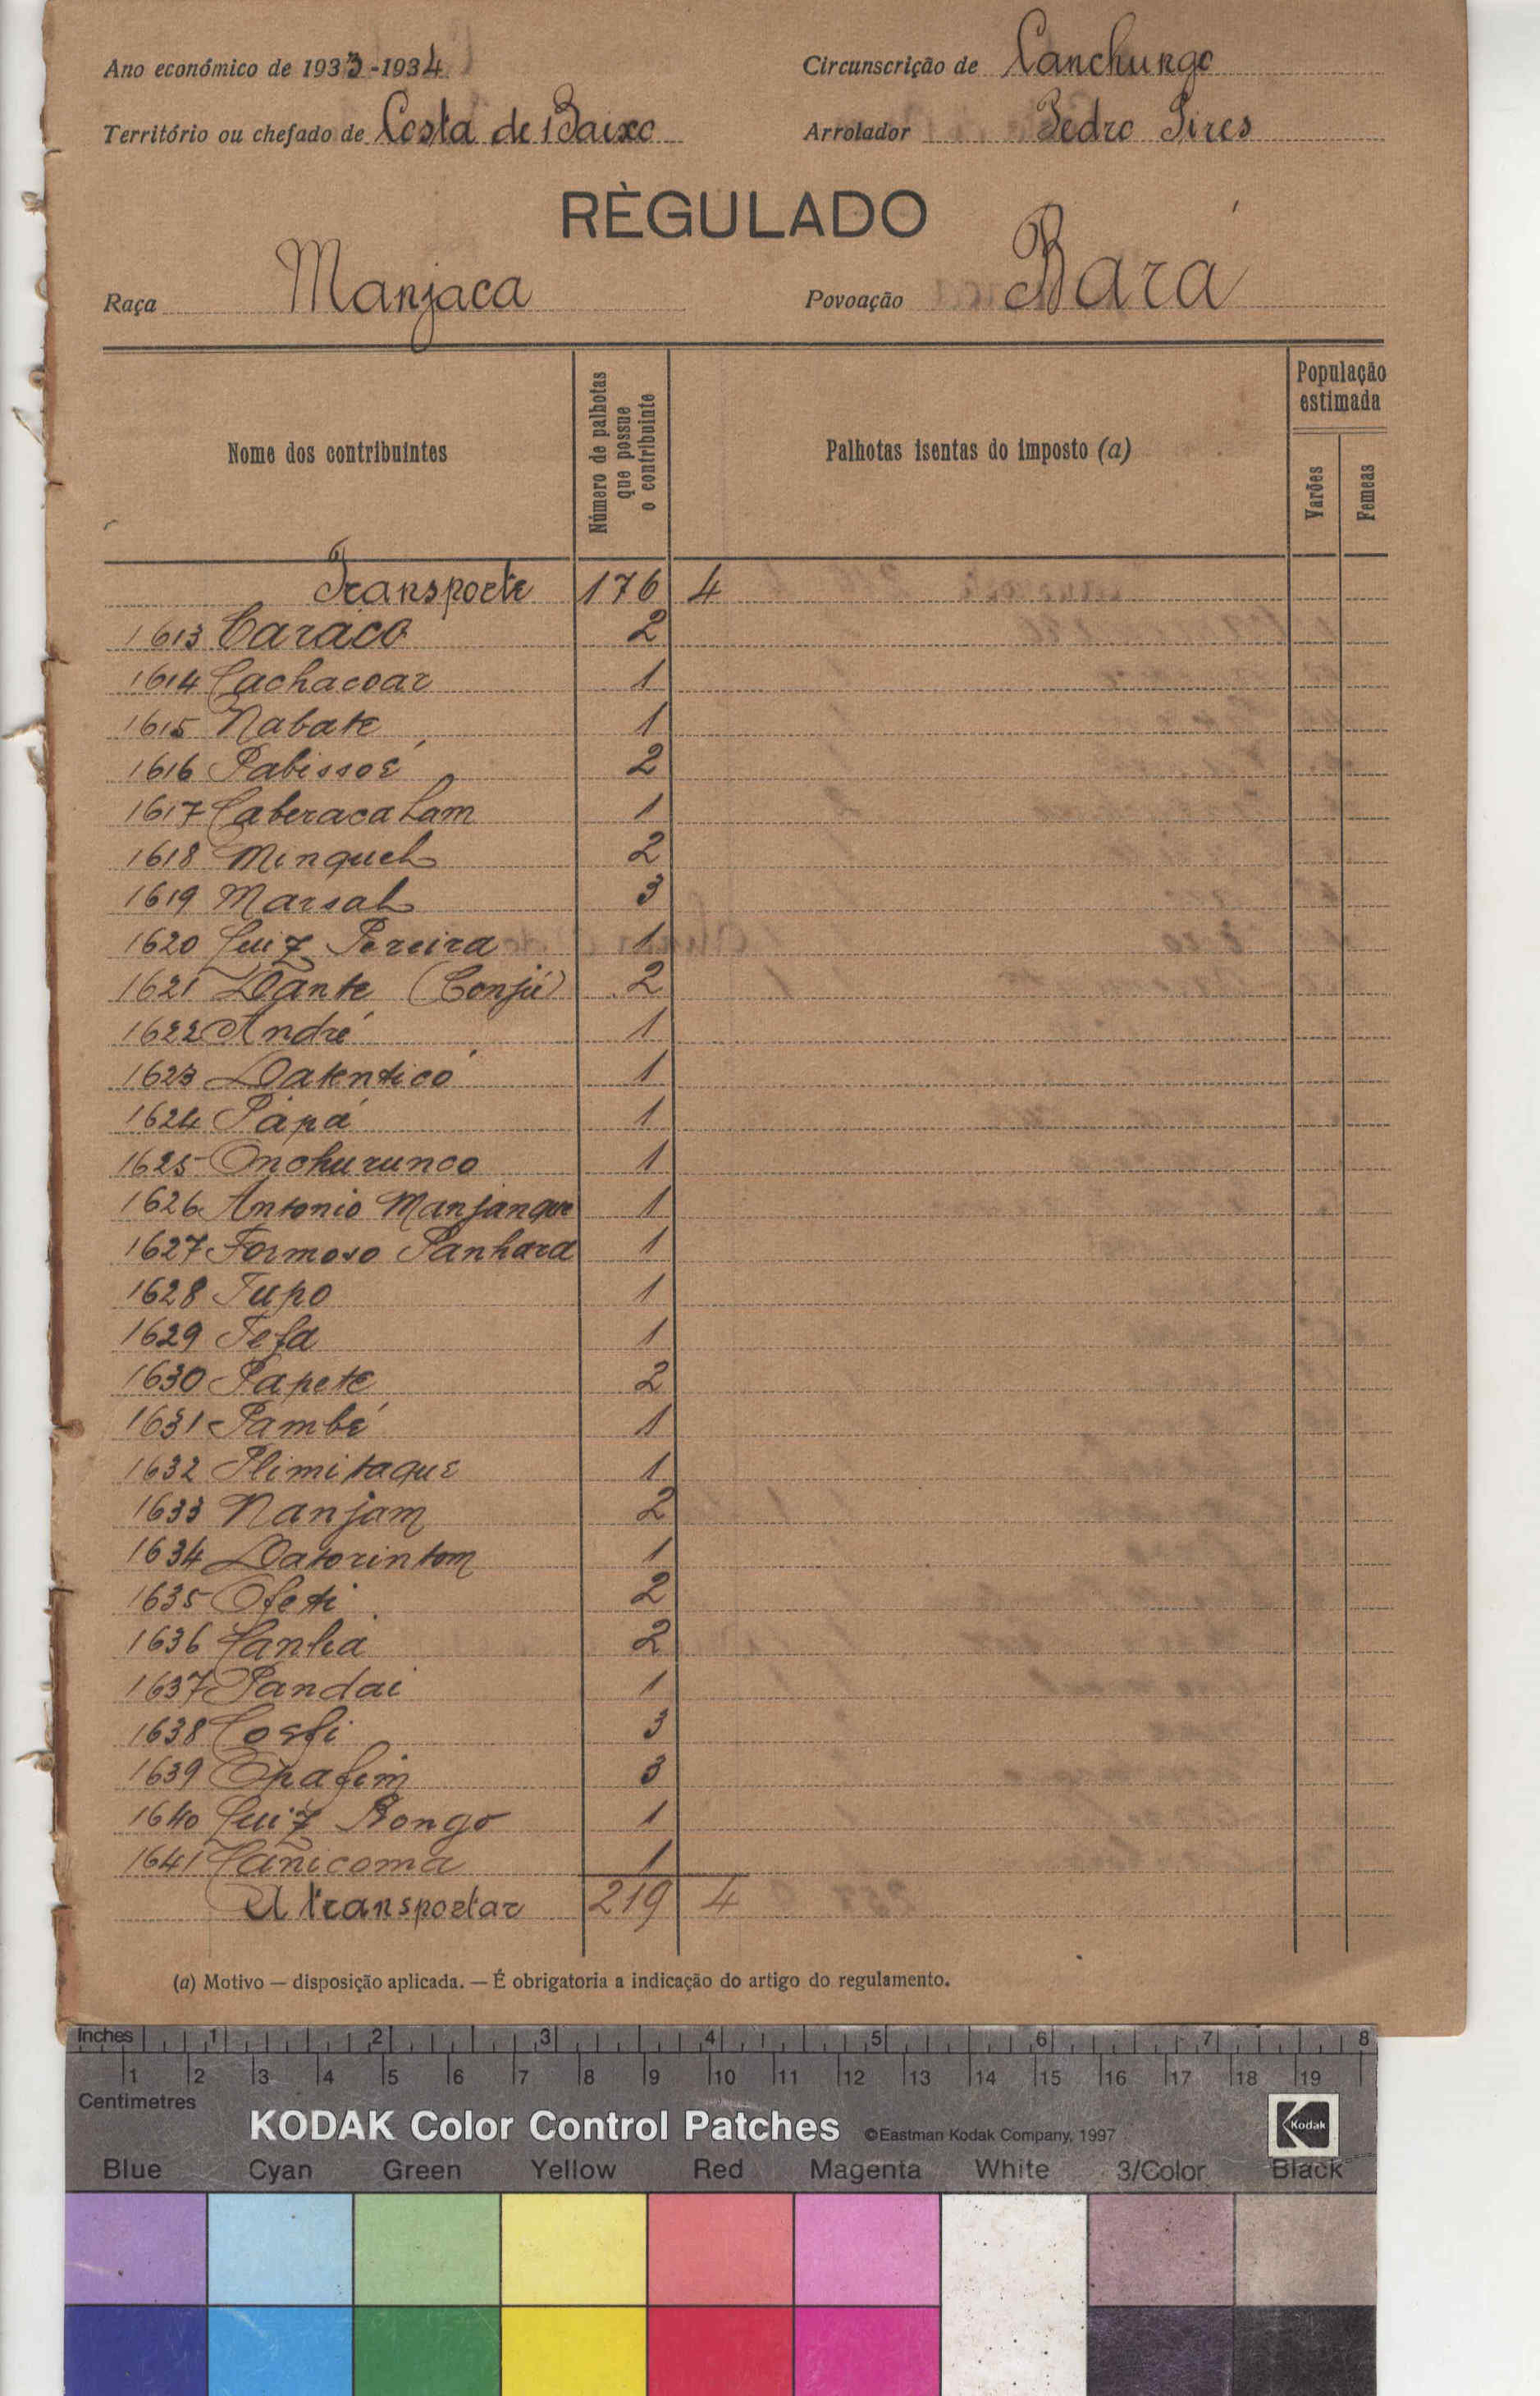 Ano económico de 1933-1934 Circunscrição de Canchungo
Território ou chefado de Costa de Baixo Arrolador Pedro Pires
RÈGULADO
Raça Manjaca Povoação Bará
Nome dos contribuintes Número de palhotas que possue o contribuinte Palhotas isentas do imposto (a) População estimada Varões Femeas
Transporte 176 4
1613 Caraco 2
1614 Cachacoar 1
1615 Nabate 1
1616 Pabissoé 2
1617 Caberaca Lam 1
1618 Minguel 2
1619 Marsal 3
1620 Luiz Pereira 1
1621 Dante (Conjú) 2
1622 André 1
1623 Datenticó 1
1624 Pápá 1
1625 Onchurunco 1
1626 Antonio Manjanque 1
1627 Formoso Panhara 1
1628 Tupo 1
1629 Tefa 1
1630 Papete 2
1631 Pambé 1
1632 Plimitaque 1
1633 Nanjam 2
1634 Datorintom 1
1635 Ofeti 2
1636 Canha 2
1637 Pandai 1
1638 Cosfi 3
1639 Opafim 3
1640 Luiz Bongo 1
1641 Canicoma 1
A transportar 219 4
(a) Motivo — disposição aplicada. — É obrigatoria a indicação do artigo do regulamento.
Inches 1 2 3 4 5 6 7 8
1 2 3 4 5 6 7 8 9 10 11 12 13 14 15 16 17 18 19
Centimetres
KODAK Color Control Patches ©Eastman Kodak Company, 1997 Kodak
Blue Cyan Green Yellow Red Magenta White 3/Color Black